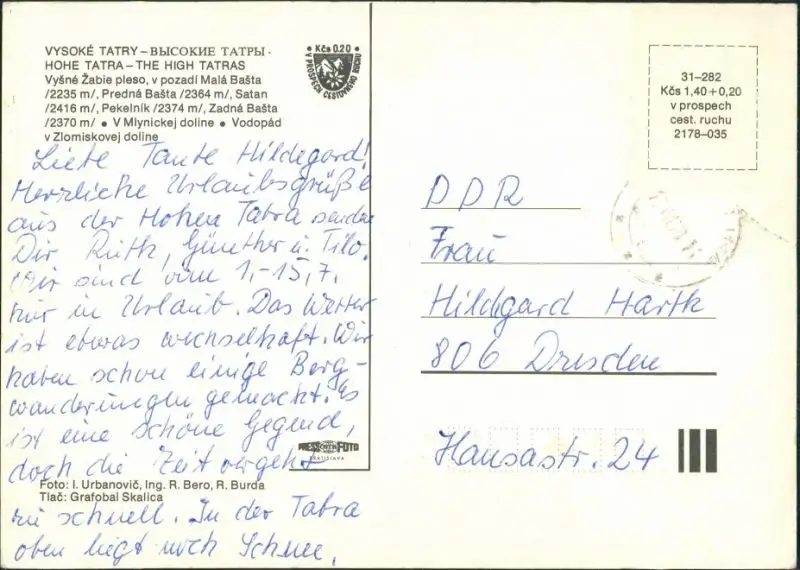 VYSOKÉ TATRY – ВЫСОКИЕ ТАТРЫ ·
HOHE TATRA – THE HIGH TATRAS
Vyšné Žabie pleso, v pozadí Malá Bašta
/2235 m/, Predná Bašta /2364 m/, Satan
/2416 m/, Pekelník /2374 m/, Zadná Bašta
/2370 m/ • V Mlynickej doline • Vodopád
v Zlomiskovej doline
• Kčs 0.20 •
V PROSPECH CESTOVNÉHO RUCHU
Liebe Tante Hildegard!
Herzliche Urlaubsgrüße
aus der Hohen Tatra senden
Dir Ruth, Günther u. Tilo.
Wir sind vom 1.-15.7.
hier in Urlaub. Das Wetter
ist etwas wechselhaft. Wir
haben schon einige Berg-
wanderungen gemacht. Es
ist eine schöne Gegend,
doch die Zeit vergeht
zu schnell. In der Tatra
oben liegt noch Schnee,
PRESSFOTO
BRATISLAVA
Foto: I. Urbanovič, Ing. R. Bero, R. Burda
Tlač: Grafobal Skalica
31–282
Kčs 1,40 + 0,20
v prospech
cest. ruchu
2178–035
DDR
Frau
Hildgard Harth
806 Dresden
Hansastr. 24